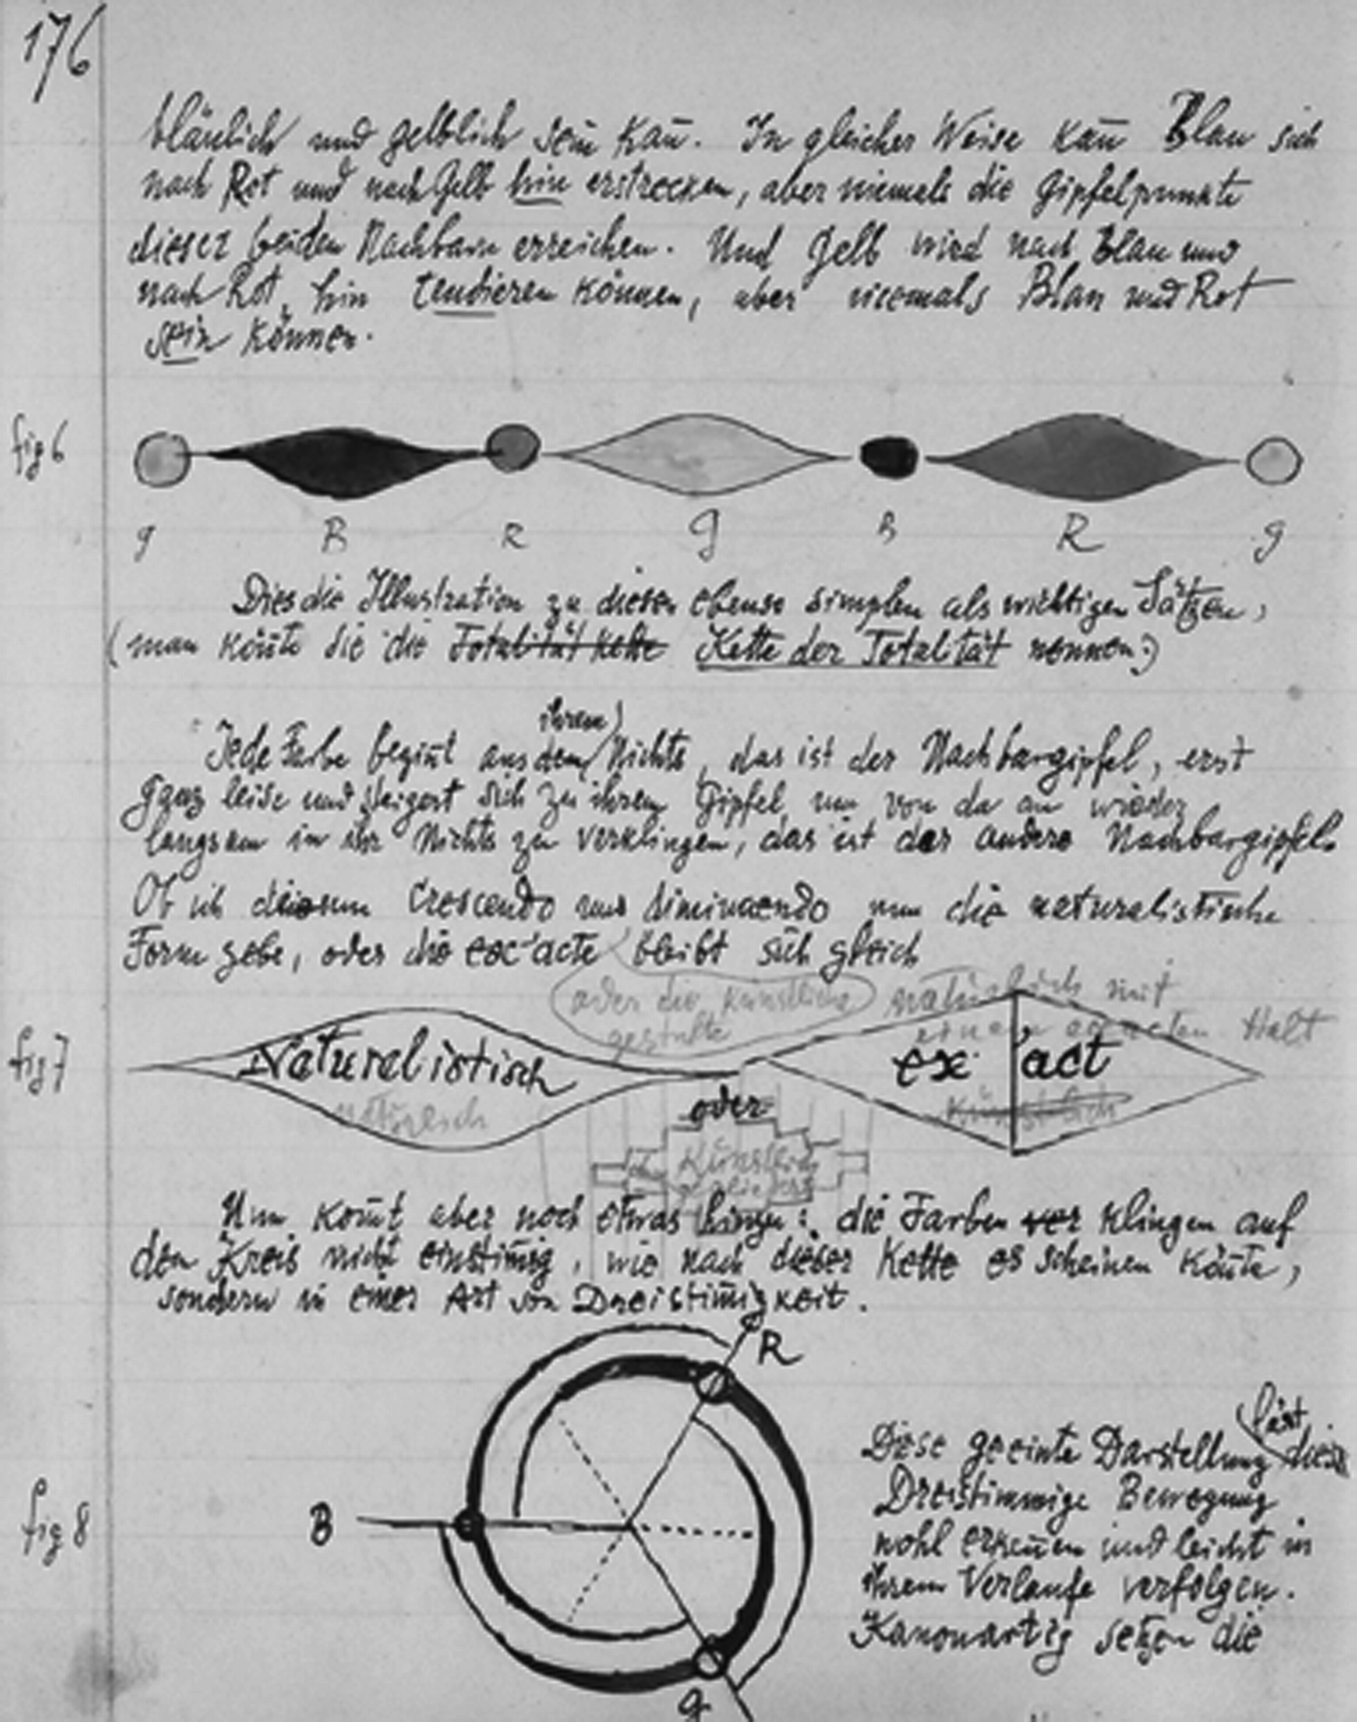 176
bläulich und gelblich sein kan̄. In gleicher Weise kan̄ Blau sich
nach Rot und nach Gelb hin erstrecken, aber niemals die Gipfelpunkte
dieser beiden Nachbarn erreichen. Und Gelb wird nach Blau und
nach Rot hin tendieren können, aber niemals Blau und Rot
sein können.
fig 6
g B R g B R g
Dies die Illustration zu diesen ebenso simplen als wichtigen Sätzen,
(man kön̄te sie die Totalität kette Kette der Totalität nennen.)
ihrem
Jede Farbe begin̄t aus dem Nichts, das ist der Nachbargipfel, erst
ganz leise und steigert sich zu ihrem Gipfel, um von da an wieder
langsam in ihr Nichts zu verklingen, das ist der andere Nachbargipfel.
Ob ich diesem Crescendo und diminuendo nun die naturalistische
Form gebe, oder die ex-acte bleibt sich gleich
oder die künstliche natürlich mit
gestalte einem exacten Halt
fig 7
Naturalistisch ex act
oder
künstlich
künstlich
Nun kom̄t aber noch etwas hinzu: die Farben ver klingen auf
den Kreis nicht einstim̄ig, wie nach dieser Kette es scheinen kön̄te,
sondern in einer Art von Dreistim̄igkeit.
R
fig 8
B
g
lässt
Diese geeinte Darstellung die
Dreistimmige Bewegung
wohl erken̄en und leicht in
ihrem Verlaufe verfolgen.
Kanonartig setzen die